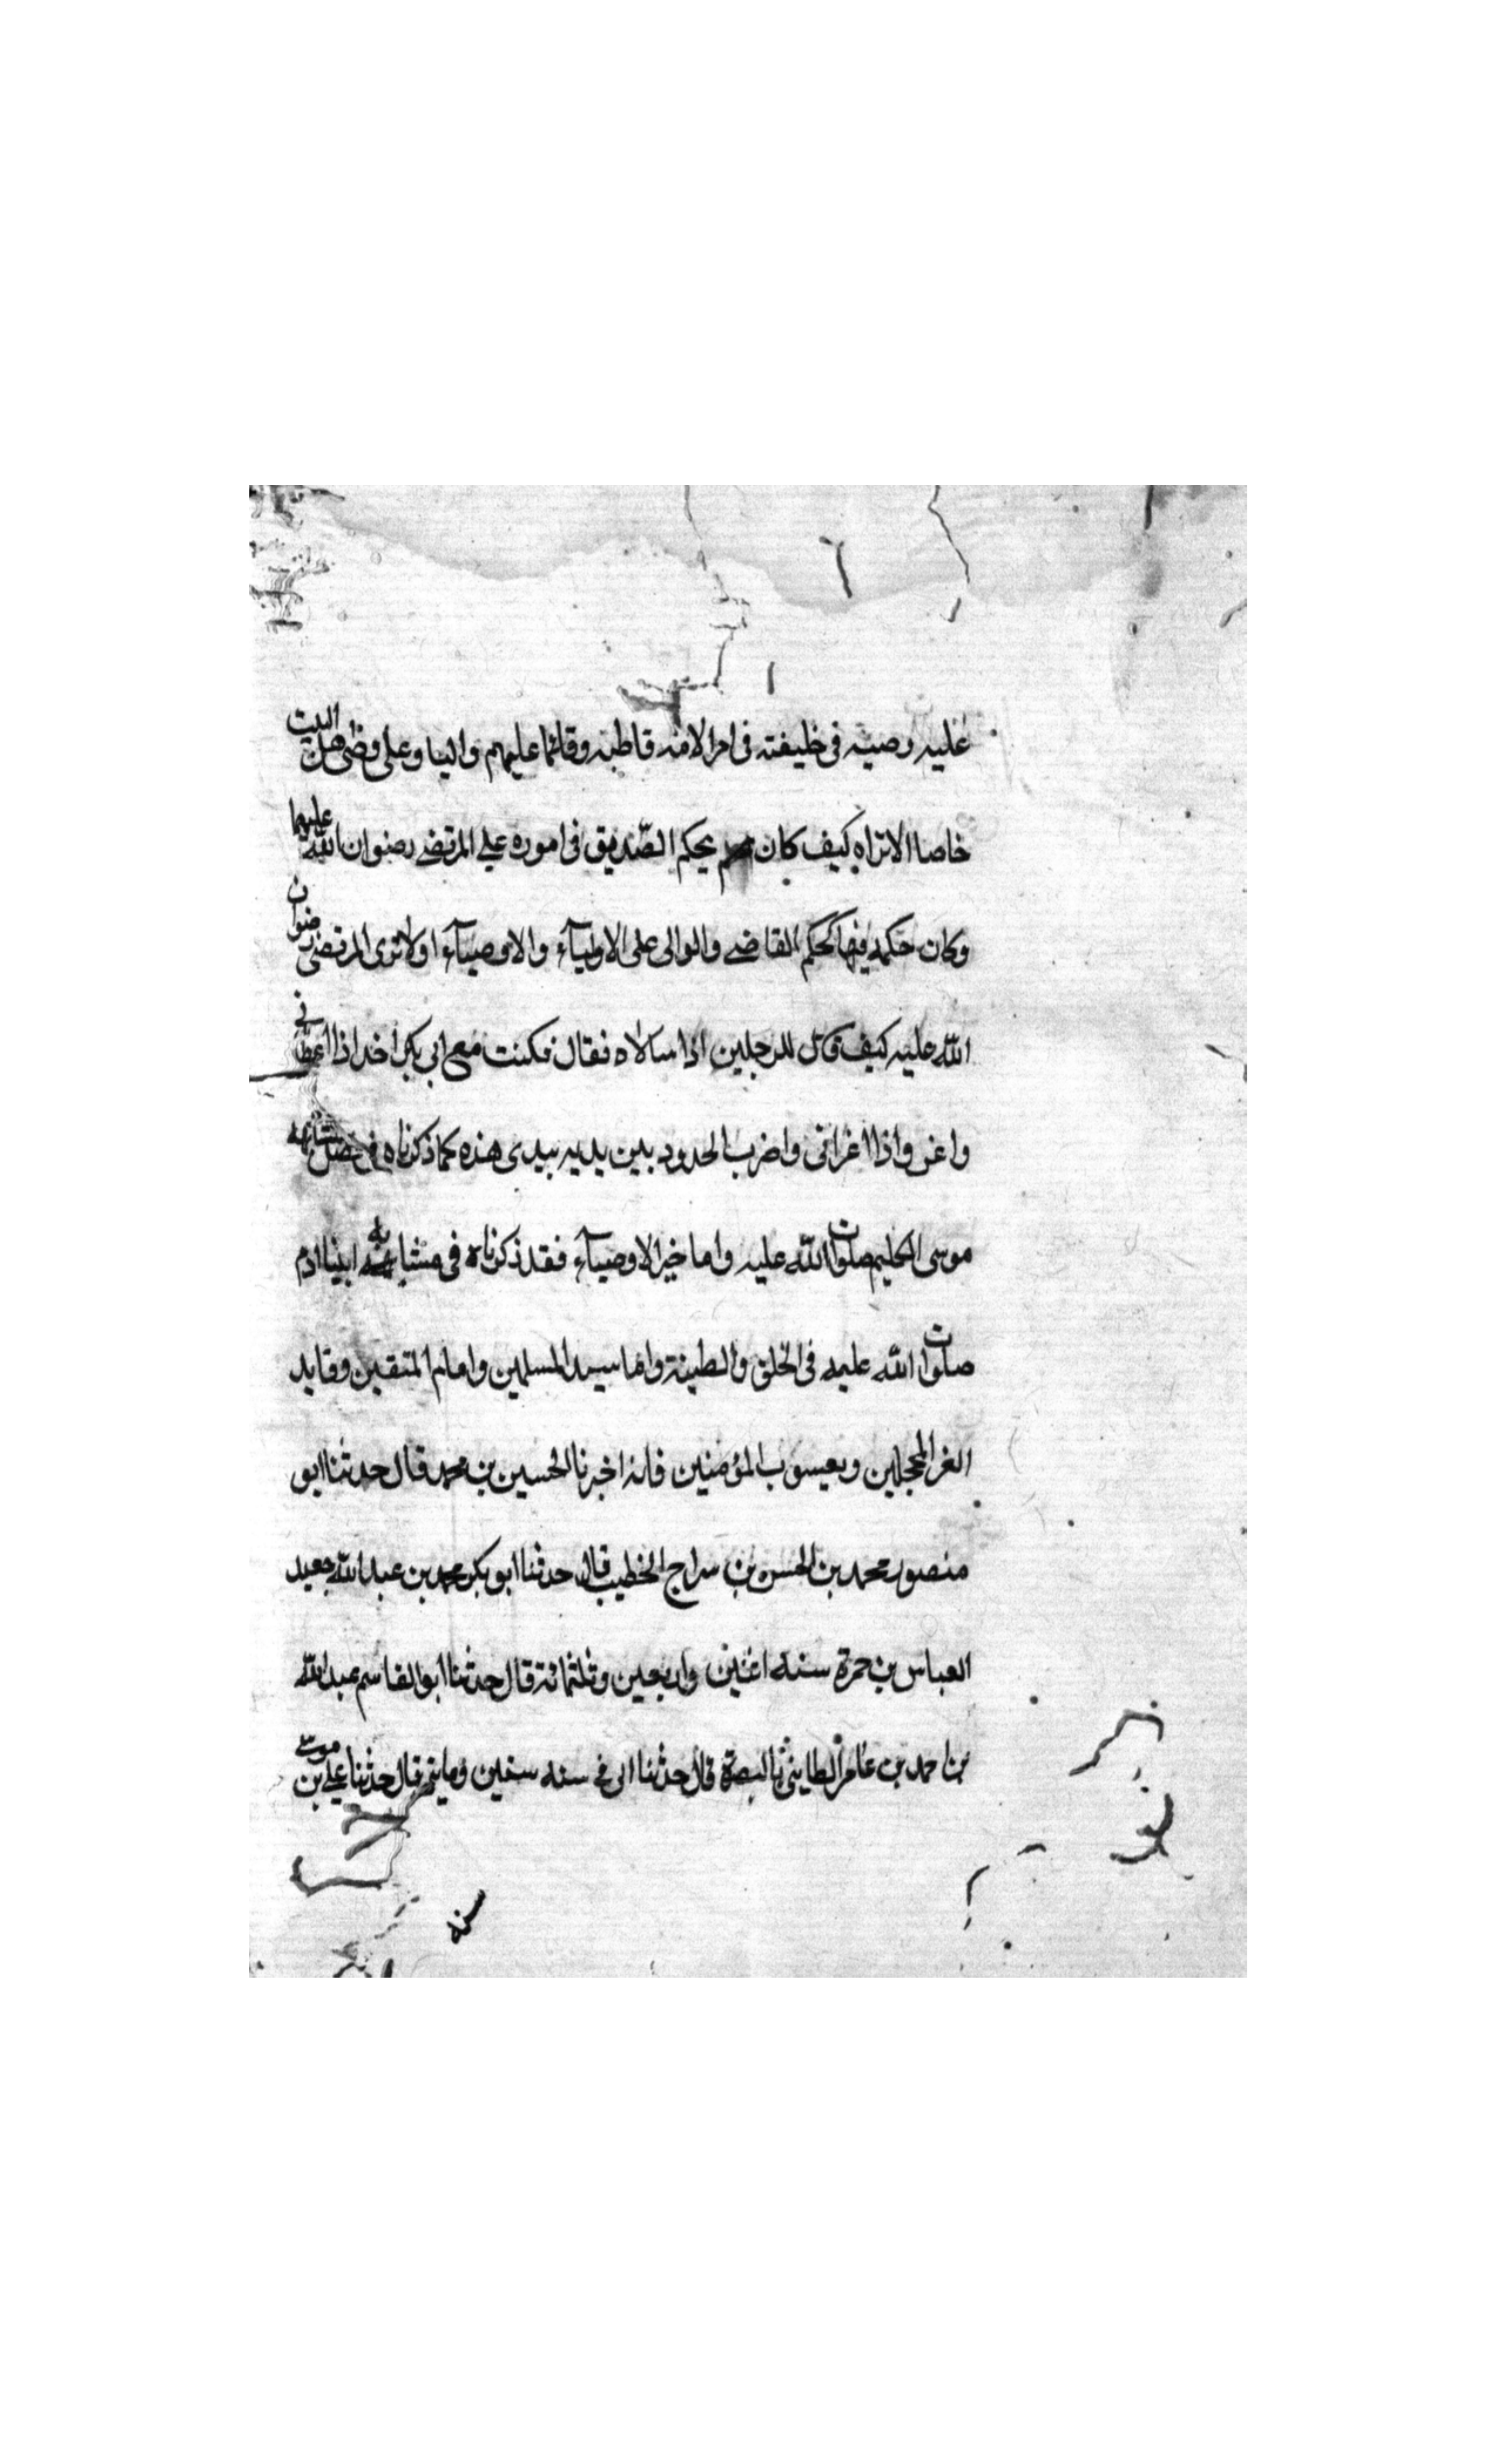 عليه وصيه في خليفته في امر الامة قاطبه وقائما عليهم واليا وعلى وصى اهل البيت
خاصا الا تراه كيف كان يحكم الصّديق في اموره على المرتضے رضوان اللّه عليهما
وكان حكمه فيها كحكم القاضے والوالى على الاوليآء والاوصيآء او لا ترى المرتضى رضوان
اللّه عليه كيف قال للرجلين اذا سالاه فقال فكنت مع ابى بكر اخذ اذا اعطانى
واغزو اذا اغزانى واضرب الحدود بين يديه بيدى هذه كما ذكرناه فى فصل مشابهة
موسى الكليم صلوات اللّه عليه واما خير الاوصيآء فقد ذكرناه فى مشابه ابينا ادم
صلوات اللّه عليه فى الخلق والطينة واما سيد المسلمين وامام المتقين وقايد
الغر المحجلين ويعسوب المؤمنين فانه اخبرنا الحسين بن محمد قال حدثنا ابو
منصور محمد بن الحسن بن سراج الخطيب قال حدثنا ابو بكر محمد بن عبد اللّه جعيد
العباس بن حمزة سنه اثنين واربعين وثلثمائة قال حدثنا ابو القاسم عبد اللّه
بن احمد بن عامر الطاينى بالبصرة قال حدثنا ابى فى سنه ستين ومايتى قال حدثنا على بن موسى
سنه